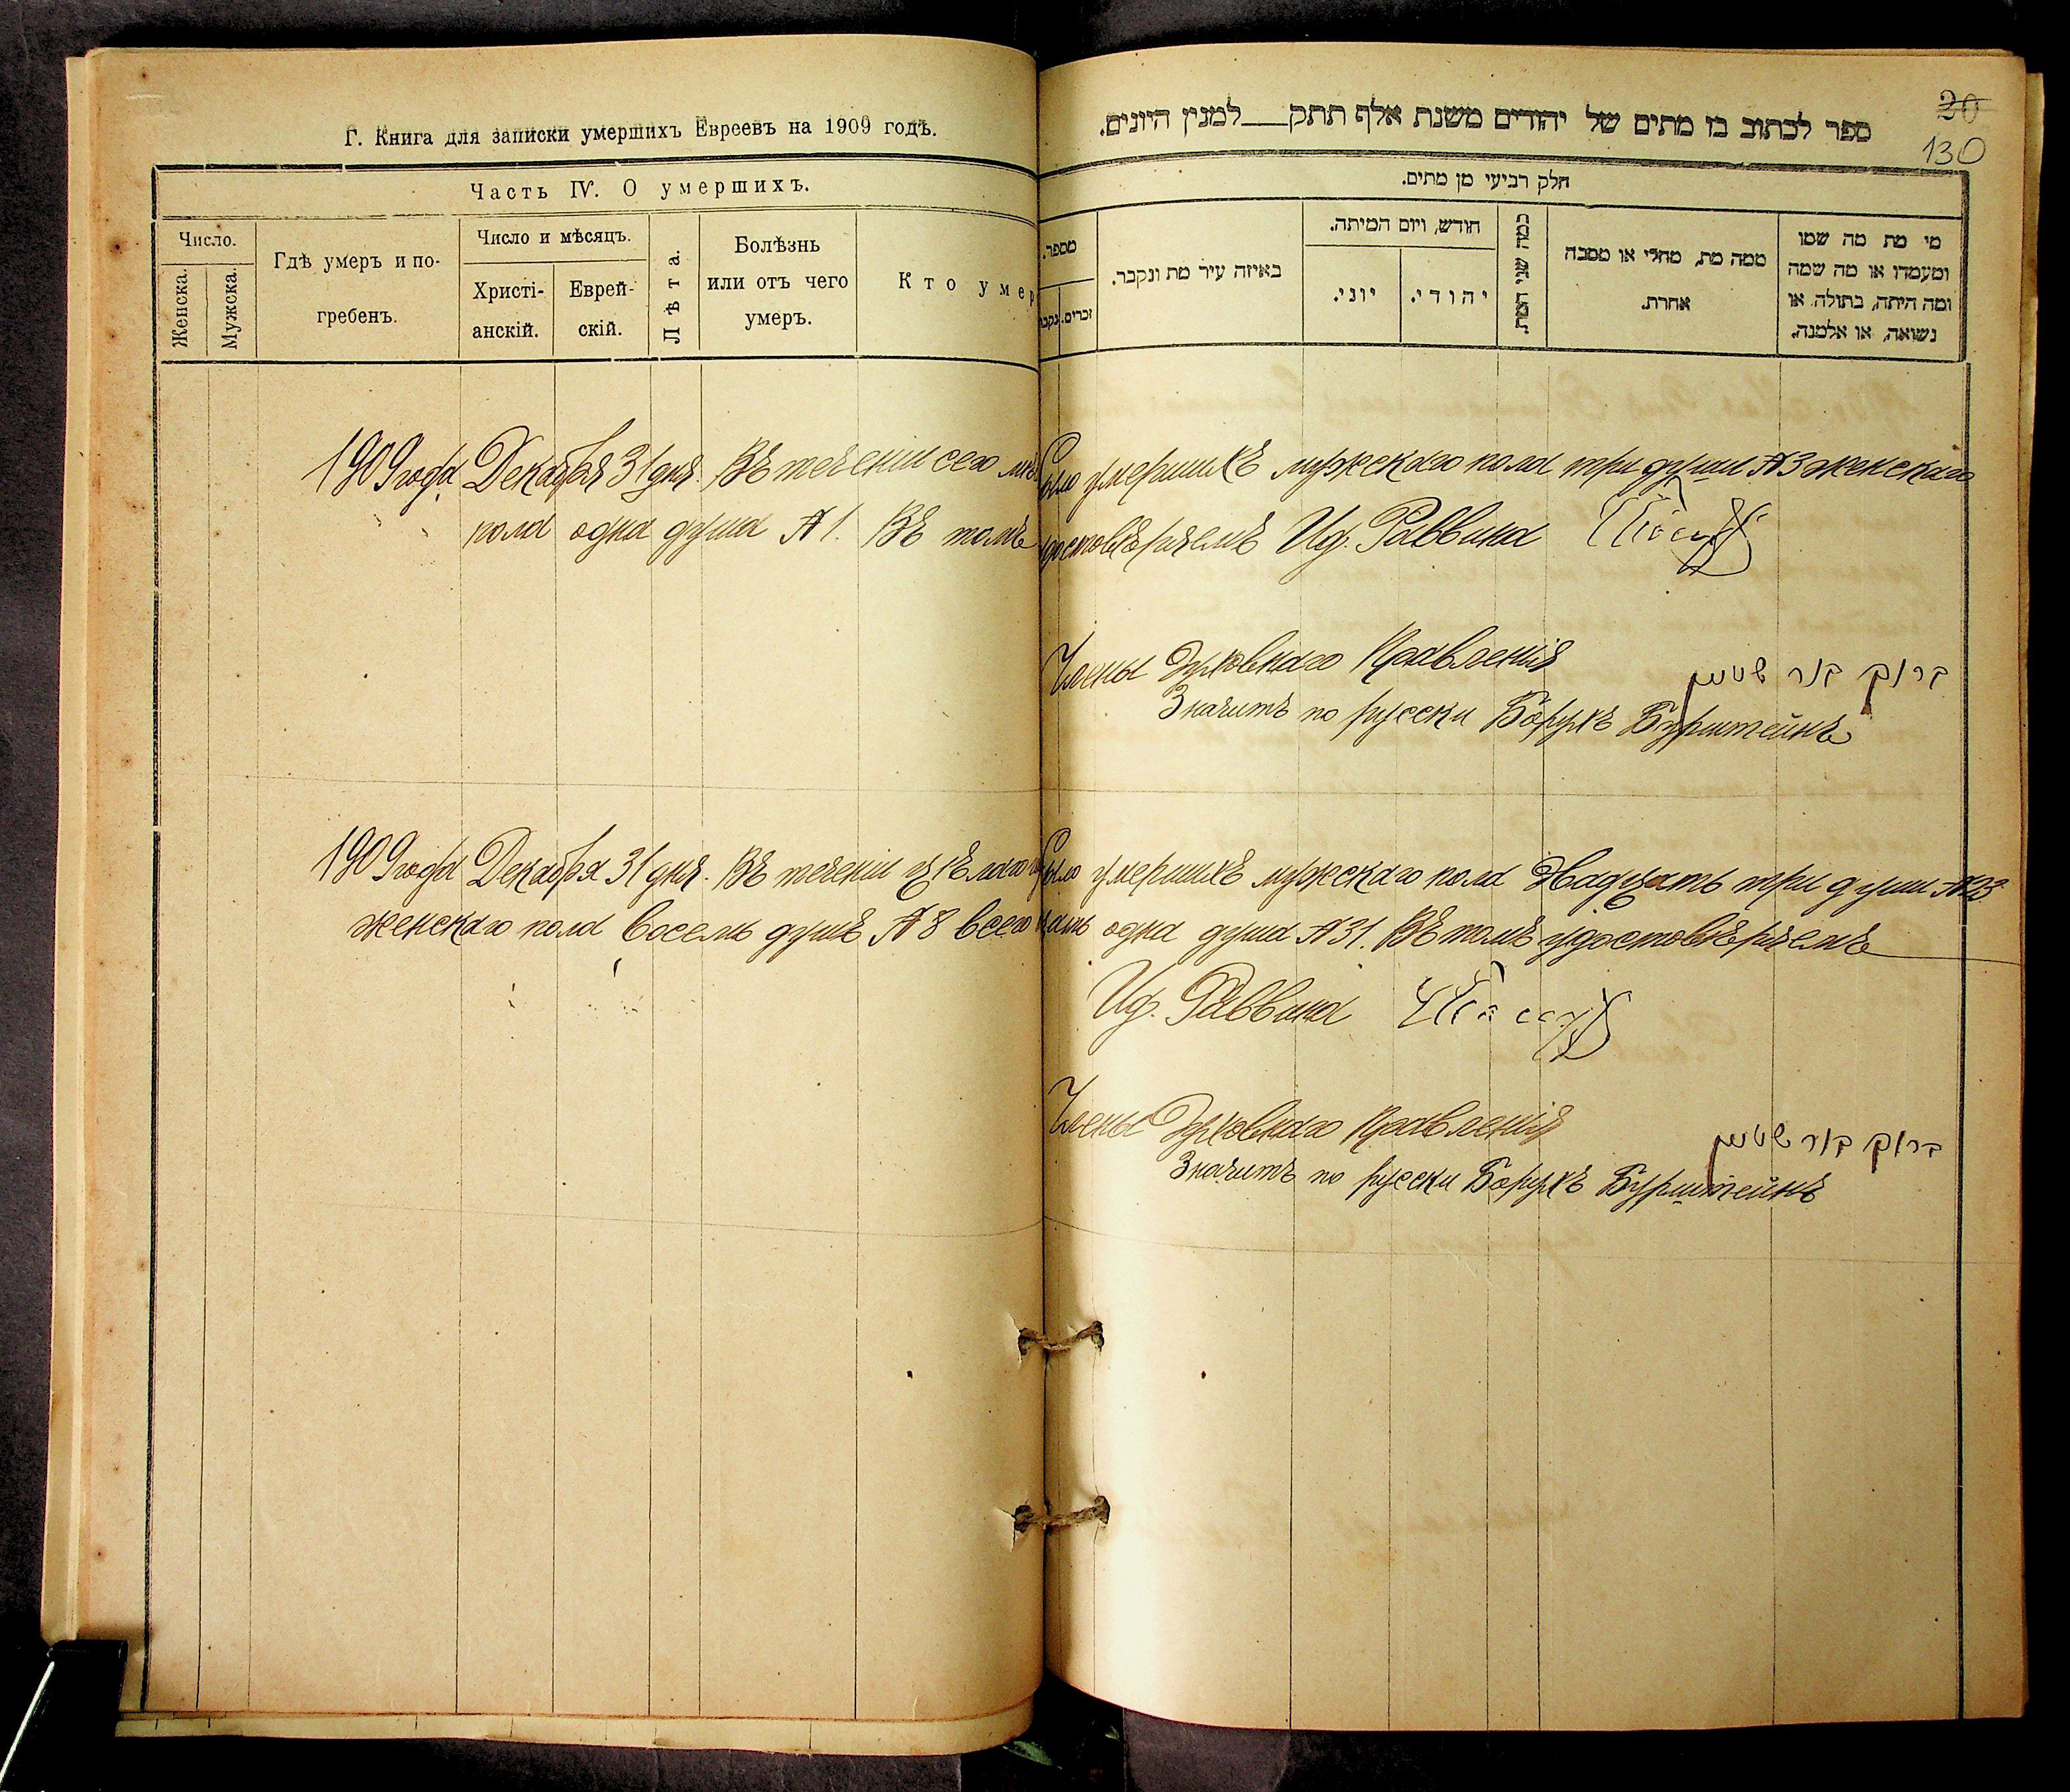 Г. Книга для записки умершихъ Евреевъ на 1909 годъ.
Часть IV. О умершихъ.
Число.
Женска.
Мужска.
Гдѣ умеръ и по-
гребенъ.
Число и мѣсяцъ.
Христі-
анскій.
Еврей-
скій.
Лѣта.
Болѣзнь
или отъ чего
умеръ.
Кто умер
20
130
ספר לכתוב בו מתים של יהודים משנת אלף תתק למנין היונים.
חלק רביעי מן מתים.
מספר.
זכרים.
נקב
באיזה עיר מת ונקבר.
חודש, ויום המיתה.
יוני.
יהודי.
כמה שני המת.
ממה מת, מחלי או מסבה
אחרת.
מי מת מה שמו
ומעמדו או מה שמה
ומה היתה, בתולה או
נשואה, או אלמנה.
1909 года Декабря 31 дня. Въ теченіи сего было умершихъ мужскаго пола три души №3 женскаго
пола одна душа №1. Въ томъ удостовѣряемъ Ид. Раввина
Члены Духовнаго Правленія ברוך בורשטיין
Значитъ по русски Борухъ Бурштейнъ
1909 года Декабря 31 дня. Въ теченіи цѣлаго было умершихъ мужскаго пола двадцать три души №23
женскаго пола восемь душъ №8 всего одна душа №31. Въ томъ удостовѣряемъ
Ид. Раввина
Члены Духовнаго Правленія ברוך בורשטיין
Значитъ по русски Борухъ Бурштейнъ